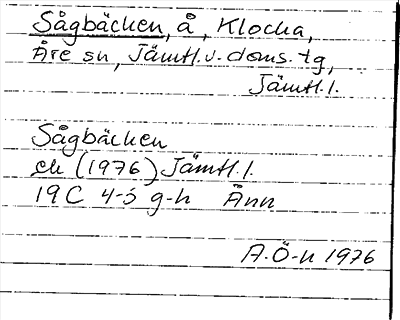 Sågbäcken, å, Klocka,
Åre sn, Jämtl.v. doms. tg,
Jämtl.l.
Sågbäcken
ek (1976) Jämtl.l.
19C 4-5 g-h Ånn
A.Ö-n 1976